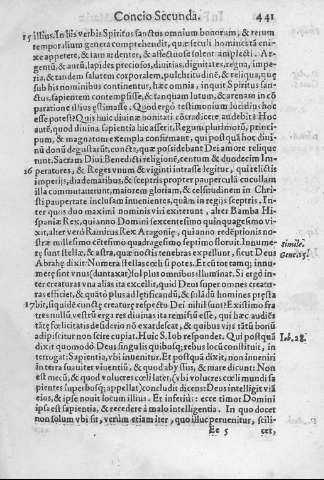 Concio Secunda. 441
15 illius. In his verbis Spiritus sanctus omnium bonorum, & rerum
temporalium genera comprehendit, quæ sæculi homines tā enixe
appetere, & tam ardenter, & affectuose solent amplecti. Argentū,
& aurū, lapides preciosos, divitias, dignitates, regna, imperia,
& tandem salutem corporalem, pulchritudinē, & reliqua, quę
sub his nominibus continentur, hæc omnia, inquit Spiritus sanctus,
sapientem contempsisse, & tanquam lutum, & arenam in cōparatione
illius estimasse. Quod ergo testimonium lucidius hoc
esse potest? Quis huic divinæ bonitati cōtradicere audebit? Hoc
autē, quod divina sapientia hic asserit, Regum plurimorū, principum,
& magnatom exempla confirmant, qui postquā hoc divinū
donū degustarūt, cuncta, quæ possidebant Dei amore reliquerunt.
Sacram Divi Benedicti religionē, centum & duodecim Im-
16 peratores, & Reges unum & viginti intrasse legitur, qui relictis
imperijs, diadematibus, & sceptris propter pauperculā cucullam
illa commutauerunt, maiorem gloriam, & celsitudinem in Christi
paupertate inclusam inuenientes, quàm in regijs sceptris. Inter
quos duo maximi nominis viri extiterunt, alter Bamba Hispaniæ
Rex, qui anno Domini sexcentesimo quinquagesimo vixit,
alter verò Ramirus Rex Aragonię, qui anno redēptionis nostræ
millesimo cētesimo quadragesimo septimo floruit. Innumerę
sunt stellæ, & astra, quæ noctis tenebras expellunt, sicut Deus
Abrahę dixit: Numera stellas cœli si potes. Et cū tot tamq; innumerę
sunt vnus (duntaxat) sol plus omnibus illuminat. Si ergò inter
creaturas vna alias ita excellit, quid Deus super omnes creaturas
efficiet, & quāto plus ad lętificandū, & sulādū homines pręsta
17 bit, siquidē cunctę creaturę respectu Dei nihil sunt? Existimo fratres
nullū vestrū erga res divinas ita remissū esse, qui hæc audiēs
tātę fœlicitatis desiderio nō exardescat, & quibus vijs tātū bonū
adipiscitur non scire cupiat. Huic S. Iob respondet. Qui postquā
dixit quomodò Deus singulis quibusq; rebus locū constituit, interrogat:
Sapientia, vbi invenitur. Et postquā dixit, non inveniri
in terra suaviter viventiū, & quod abyssus, & mare dicunt: Non
est mecū, & quod volucres cœli later, (vbi volucres cœli mundi sapientes
superbosq; appellat) concludit dicens: Deus intelligit viā
eius, & ipse novit locum illius. Et inferius: ecce timor Domini
ipsa est sapientia, & recedere à malo intelligentia. In quo docet
non solum vbi sit, verùm etiam iter, quo illuc perueniatur, scili-
Ee 5 cet,
Simile.
Genes. 15.
Iob. 28.